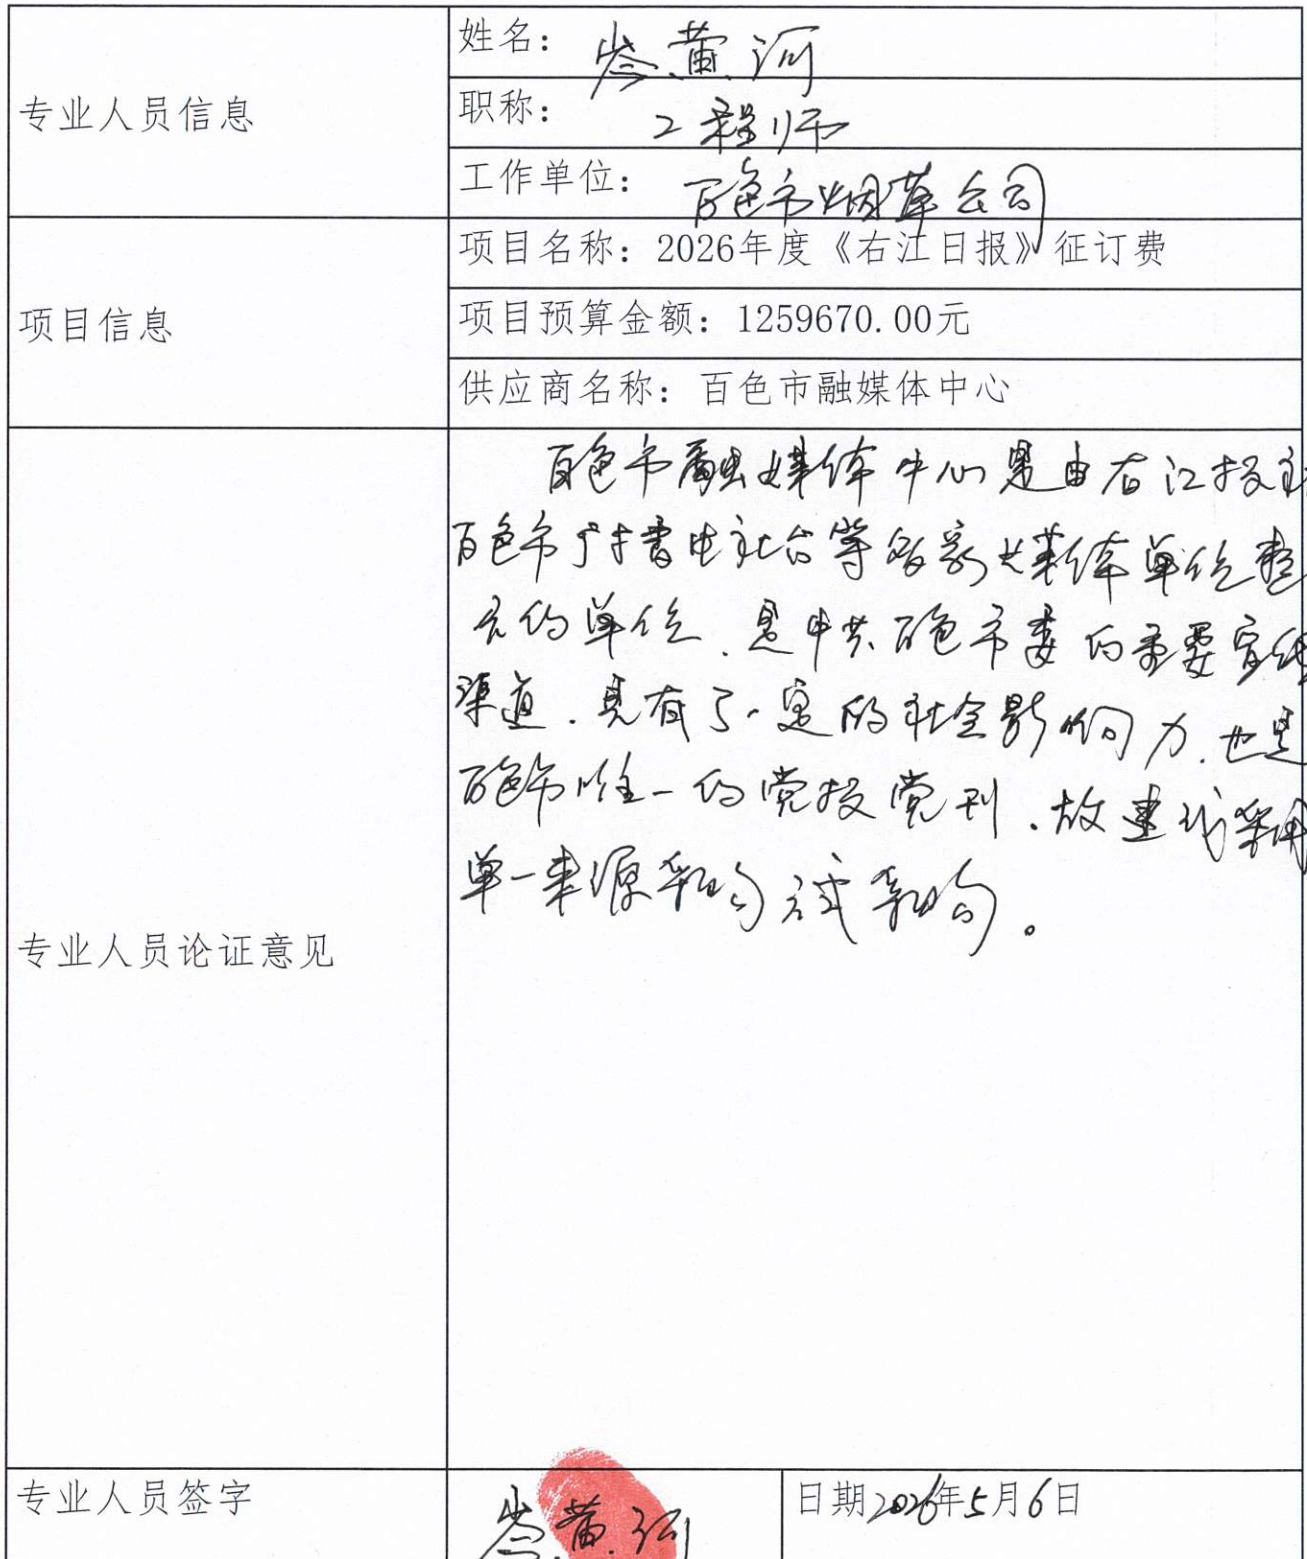 专业人员信息
姓名：岑黄河
职称：工程师
工作单位：百色市烟草公司
项目信息
项目名称：2026年度《右江日报》征订费
项目预算金额：1259670.00元
供应商名称：百色市融媒体中心
专业人员论证意见
百色市融媒体中心是由右江报社
百色市广播电视台等多家媒体单位整
合的单位．是中共百色市委的重要宣传
渠道．具有了一定的社会影响力．也是
百色市唯一的党报党刊．故建议采用
单一来源采购方式采购。
专业人员签字
岑黄河
日期2026年5月6日